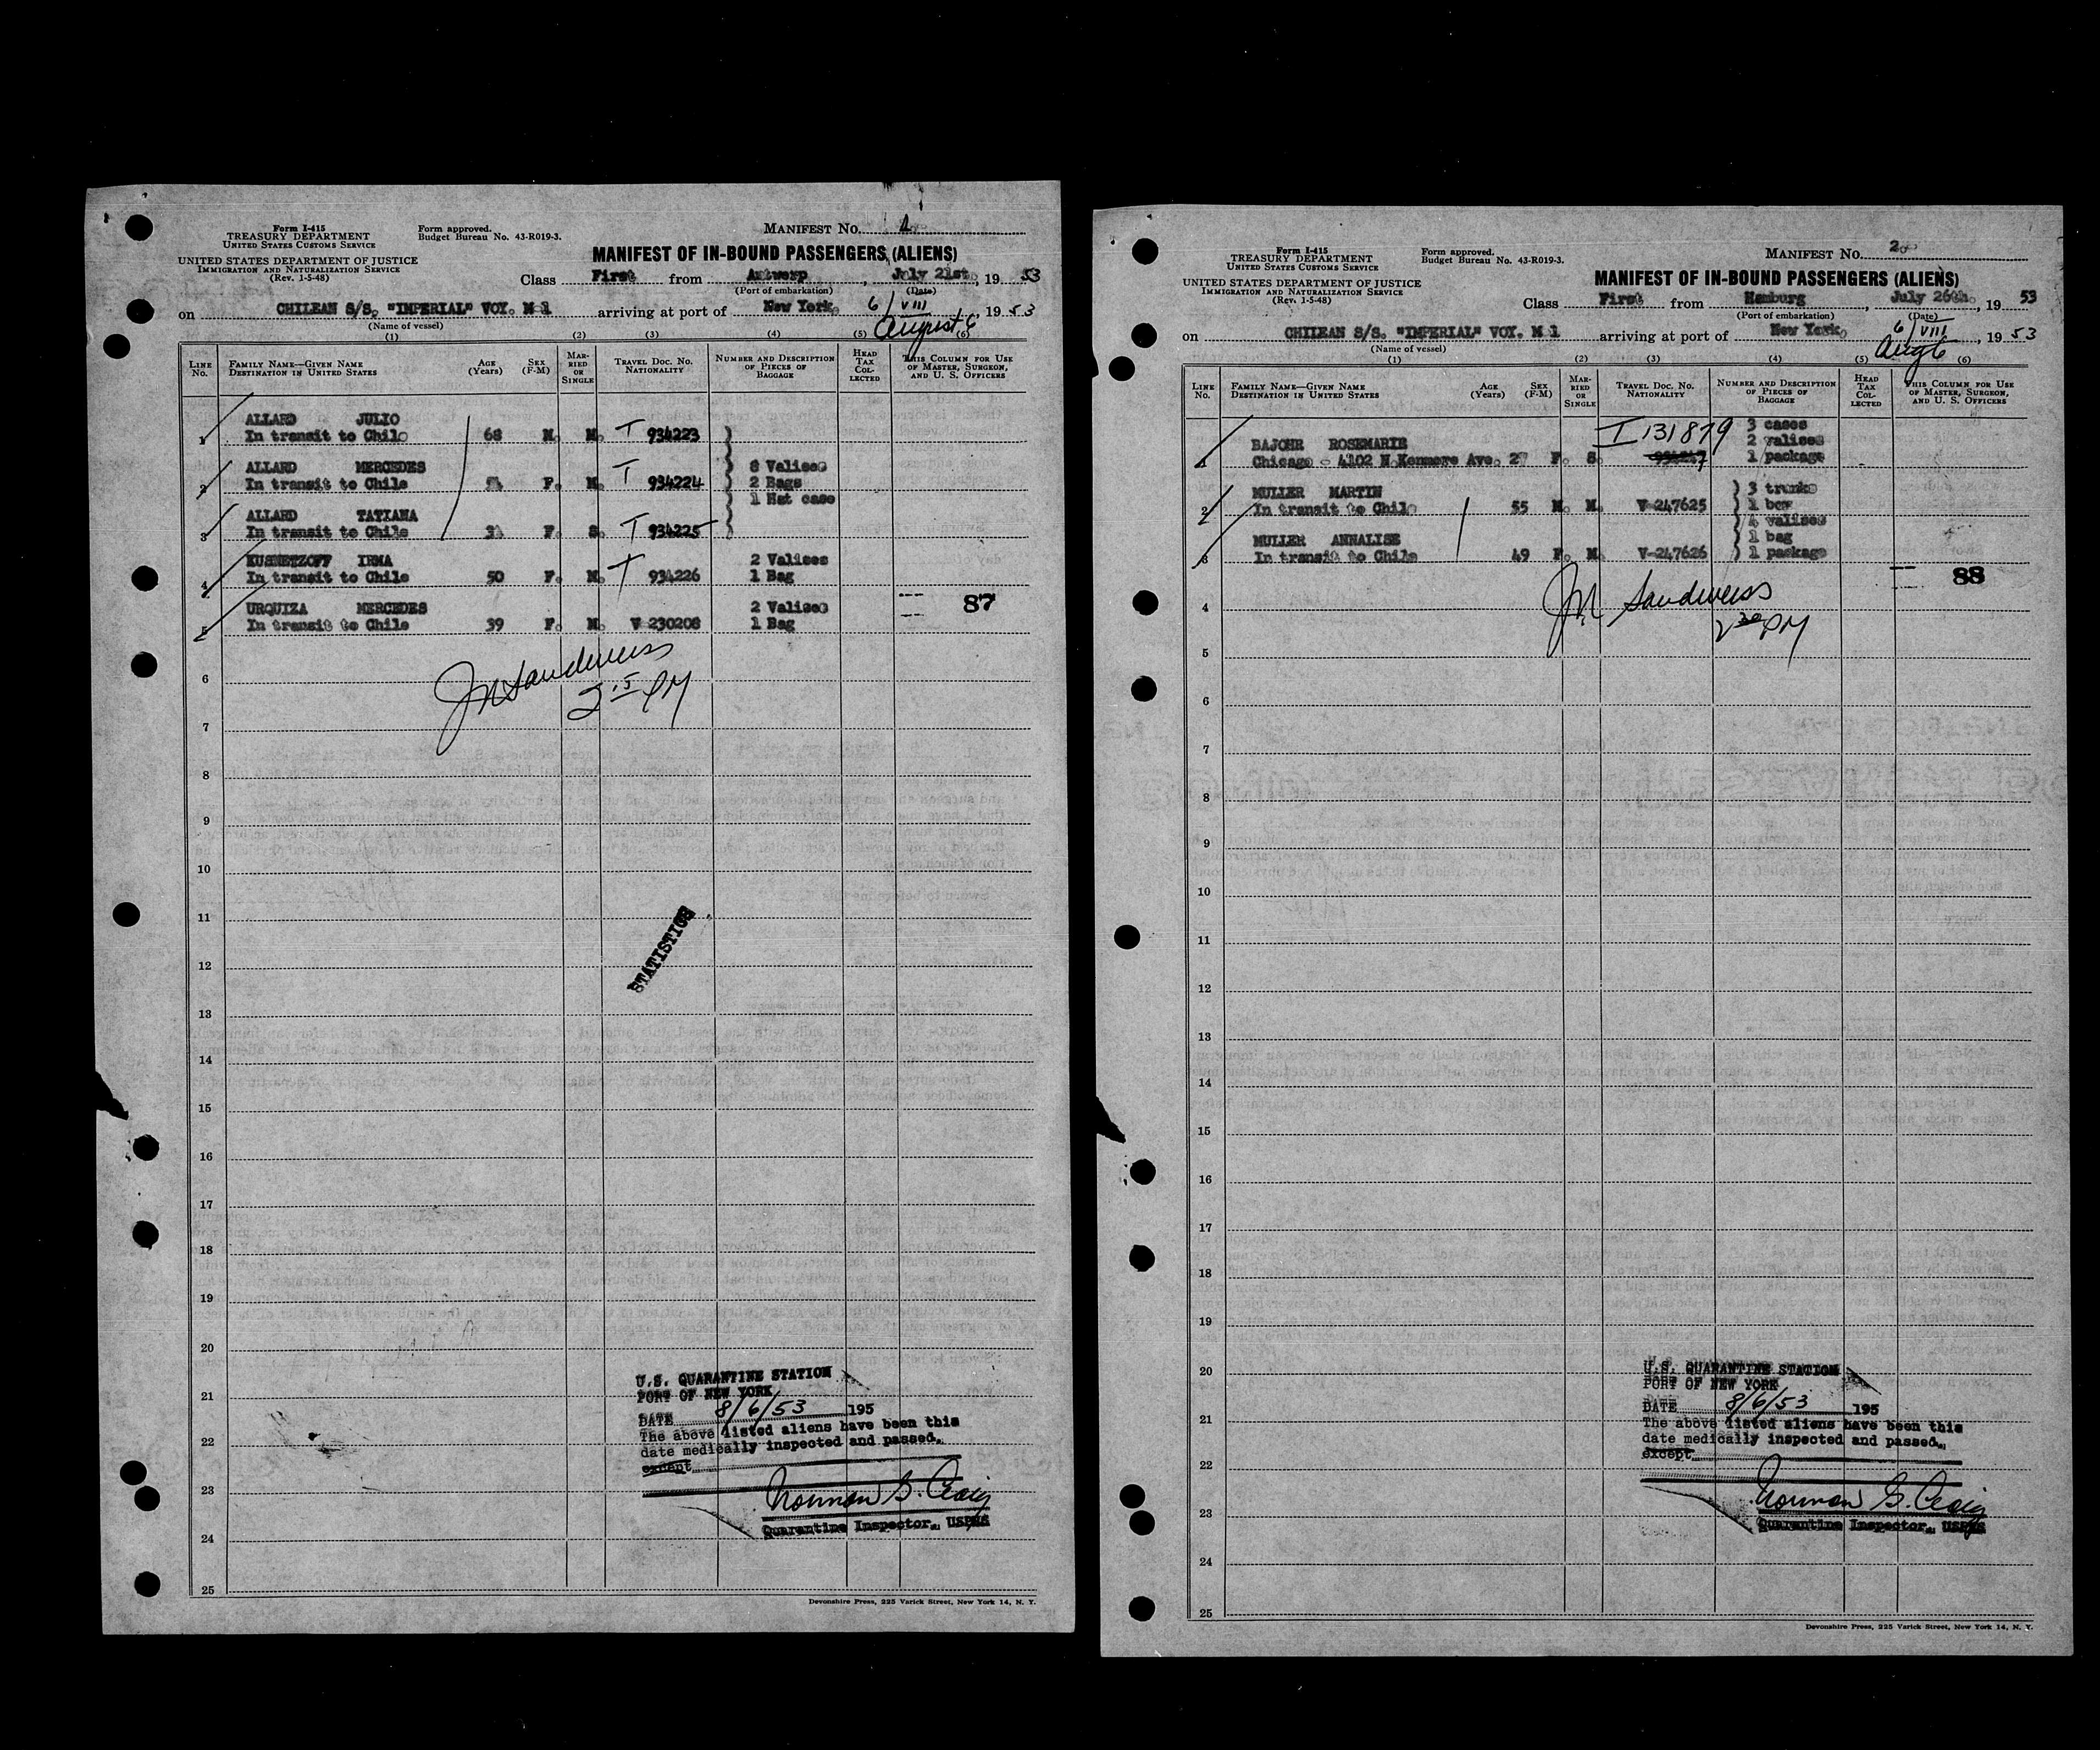 Form I-415
TREASURY DEPARTMENT
UNITED STATES CUSTOMS SERVICE
UNITED STATES DEPARTMENT OF JUSTICE
IMMIGRATION AND NATURALIZATION SERVICE
(Rev. 1-5-48)
Form approved.
Budget Bureau No. 43-R019-3.
MANIFEST No.
MANIFEST OF IN-BOUND PASSENGERS (ALIENS)
Class First from Antwerp, July 21st, 1953
(Port of embarkation) (Date)
on CHILEAN S/S. "IMPERIAL" VOY. N 1 arriving at port of New York, 6/VIII, 1953
August 6
(Name of vessel)
(1) (2) (3) (4) (5) (6)
LINE No. FAMILY NAME—GIVEN NAME DESTINATION IN UNITED STATES AGE (Years) SEX (F-M) MARRIED OR SINGLE TRAVEL DOC. No. NATIONALITY NUMBER AND DESCRIPTION OF PIECES OF BAGGAGE HEAD TAX COLLECTED THIS COLUMN FOR USE OF MASTER, SURGEON, AND U. S. OFFICERS
ALLARD JULIO
1 In transit to Chile 68 M. M. T 934223
ALLARD MERCEDES 8 Valises
2 In transit to Chile F. M. T 934224 2 Bags
1 Hat case
ALLARD TATIANA
3 In transit to Chile F. S. T 934225
KUSNETZOFF IRMA 2 Valises
4 In transit to Chile 50 F. M. T 934226 1 Bag
URQUIZA MERCEDES 2 Valises 87
5 In transit to Chile 39 F. M. V 230208 1 Bag
JN Sandweiss
2 15 PM
6
7
8
9
10
11
STATISTICS
12
13
14
15
16
17
18
19
20
U.S. QUARANTINE STATION
21 PORT OF NEW YORK
DATE 8/6/53 195
The above listed aliens have been this
22 date medically inspected and passed.
except
23 Norman G. Craig
Quarantine Inspector, USPHS
24
25
Devonshire Press, 225 Varick Street, New York 14, N. Y.
Form I-415
TREASURY DEPARTMENT
UNITED STATES CUSTOMS SERVICE
UNITED STATES DEPARTMENT OF JUSTICE
IMMIGRATION AND NATURALIZATION SERVICE
(Rev. 1-5-48)
Form approved.
Budget Bureau No. 43-R019-3.
MANIFEST No. 2
MANIFEST OF IN-BOUND PASSENGERS (ALIENS)
Class First from Hamburg, July 26th, 1953
(Port of embarkation) (Date)
on CHILEAN S/S. "IMPERIAL" VOY. N 1 arriving at port of New York, 6/VIII, 1953
Aug 6
(Name of vessel)
(1) (2) (3) (4) (5) (6)
LINE No. FAMILY NAME—GIVEN NAME DESTINATION IN UNITED STATES AGE (Years) SEX (F-M) MARRIED OR SINGLE TRAVEL DOC. No. NATIONALITY NUMBER AND DESCRIPTION OF PIECES OF BAGGAGE HEAD TAX COLLECTED THIS COLUMN FOR USE OF MASTER, SURGEON, AND U. S. OFFICERS
I 131879 3 cases
BAJOHR ROSEMARIE 2 valises
1 Chicago - 4102 N Kenmore Ave. 27 F. S. 1 package
MULLER MARTIN 3 trunks
2 In transit to Chile 55 M. M. V-247625 1 box
4 valises
MULLER ANNALISE 1 bag
3 In transit to Chile 49 F. M. V-247626 1 package
88
4 JN Sandweiss
2 30 PM
5
6
7
8
9
10
11
12
13
14
15
16
17
18
19
20 U.S. QUARANTINE STATION
PORT OF NEW YORK
DATE 8/6/53 195
21 The above listed aliens have been this
date medically inspected and passed.
except
22
Norman G. Craig
23 Quarantine Inspector, USPHS
24
25
Devonshire Press, 225 Varick Street, New York 14, N. Y.